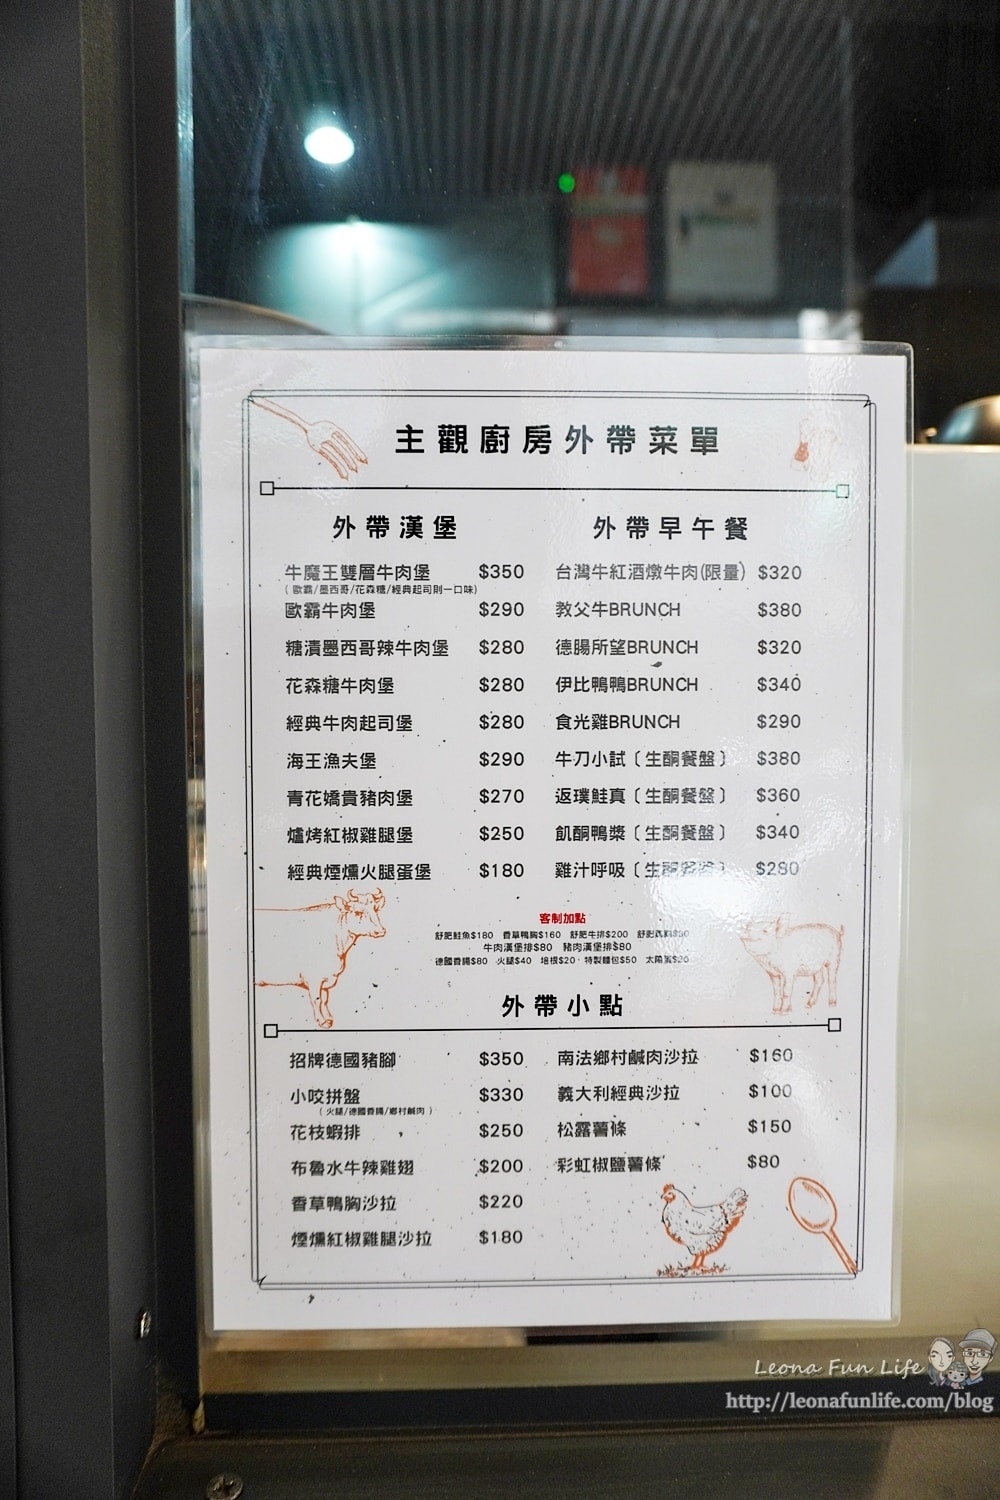 主觀廚房外帶菜單
外帶漢堡
牛魔王雙層牛肉堡 $350
(歐霸/墨西哥/花森糖/經典起司則一口味)
歐霸牛肉堡 $290
糖漬墨西哥辣牛肉堡 $280
花森糖牛肉堡 $280
經典牛肉起司堡 $280
海王漁夫堡 $290
青花嬌貴豬肉堡 $270
爐烤紅椒雞腿堡 $250
經典煙燻火腿蛋堡 $180
外帶早午餐
台灣牛紅酒燉牛肉(限量) $320
教父牛BRUNCH $380
德腸所望BRUNCH $320
伊比鴨鴨BRUNCH $340
食光雞BRUNCH $290
牛刀小試〔生酮餐盤〕 $380
返璞鮭真〔生酮餐盤〕 $360
飢酮鴨漿〔生酮餐盤〕 $340
雞汁呼吸〔生酮餐盤〕 $280
客制加點
舒肥鮭魚$180 香草鴨胸$160 舒肥牛排$200 舒肥
牛肉漢堡排$80 豬肉漢堡排$80
德國香腸$80 火腿$40 培根$20 特製麵包$50 太陽蛋$20
外帶小點
招牌德國豬腳 $350
小咬拼盤 $330
(火腿/德國香腸/鄉村鹹肉)
花枝蝦排 $250
布魯水牛辣雞翅 $200
香草鴨胸沙拉 $220
煙燻紅椒雞腿沙拉 $180
南法鄉村鹹肉沙拉 $160
義大利經典沙拉 $100
松露薯條 $150
彩虹椒鹽薯條 $80
Leona Fun Life
http://leonafunlife.com/blog